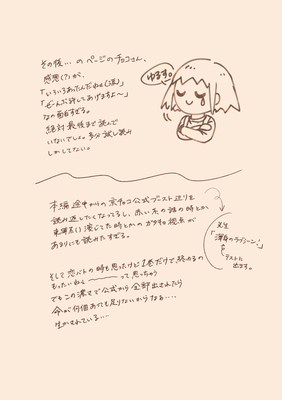 その後… のページのチョコさん、
感想(?)が、
「いろいろあったんだねぇ(涙)」
「ぜーんぶ許してあげますよ〜」
なの面白すぎる。
絶対最後まで読んで
いないでしょ。多分試し読み
しかしてない。
ゆるす。
本編途中からの京チョコ公式ブースト辺りを
読み返したくなってるし、赤い糸の話の時とか
来軍()演じてた時とかの ガタチョ視点が
あまりにも読みたすぎる。
先生
「渾身のラブシーン！」
テストに
出ます。
そして恋バトの時も思ったけど1巻だけで終わるの
もったいねぇ〜って思っちゃう
でもこの濃さで公式から全部出されたら
命が何個あっても足りないからなぁ…、
生かされている…、